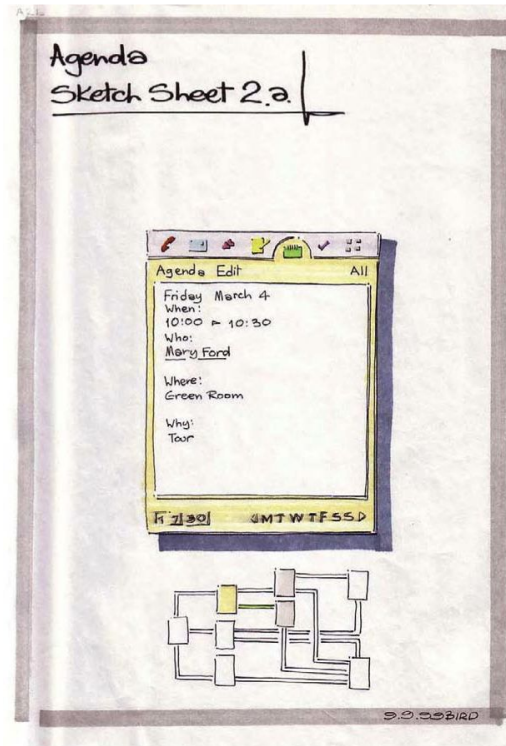 Agenda
Sketch Sheet 2.a.
Agenda Edit All
Friday March 4
When:
10:00 ► 10:30
Who:
Mary Ford
Where:
Green Room
Why:
Tour
1 7 30 MTWTFSS